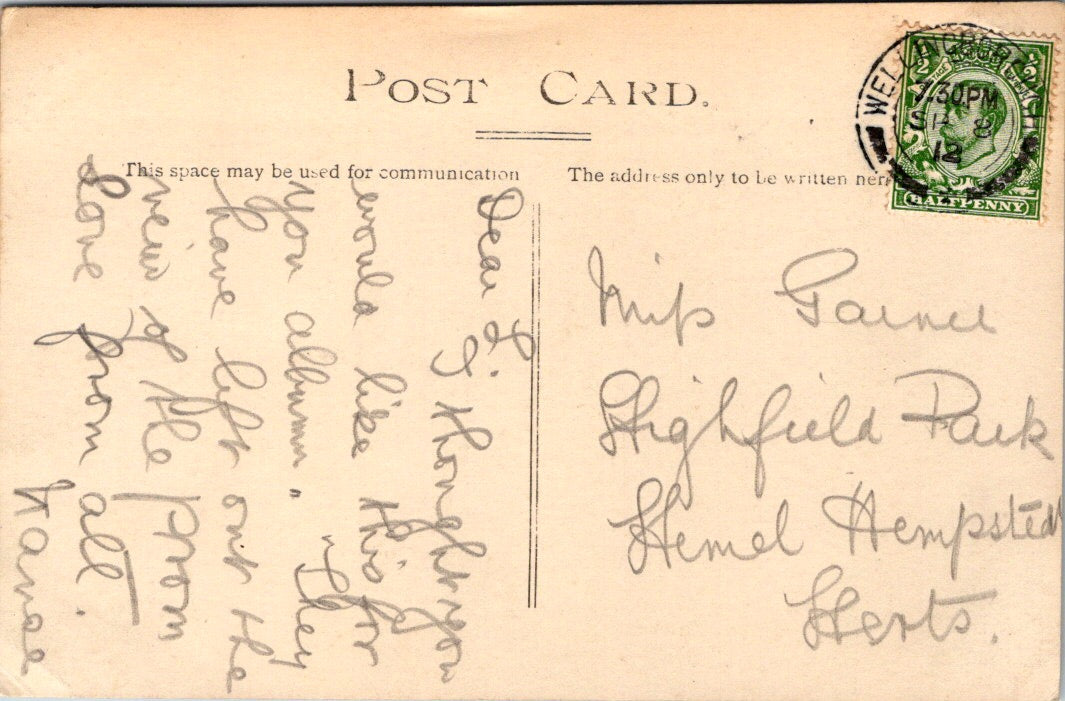 POST CARD.
This space may be used for communication
The address only to be written here
WELLINGBOROUGH
7.30PM
SP 8
12
HALFPENNY
Dear L.
I thought you
would like this for
you album. They
have left out the
view of the front
Love from all.
Miss Garner
Highfield Park
Hemel Hempstead
Herts.